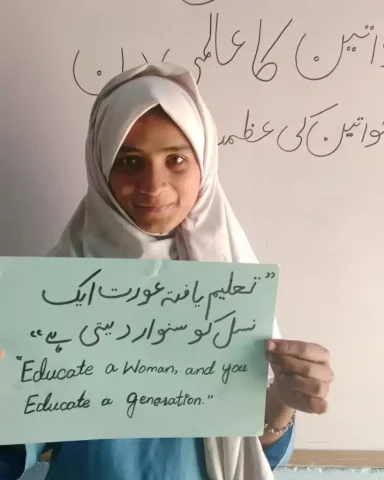 خواتین کا عالمی دن
خواتین کی عظمت
"تعلیم یافتہ عورت ایک
نسل کو سنوار دیتی ہے"
"Educate a Woman, and you
Educate a generation."